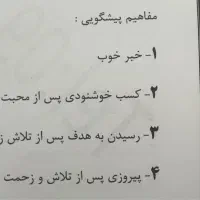 مفاهیم پیشگویی :
۱- خبر خوب
۲- کسب خوشنودی پس از محبت
۳- رسیدن به هدف پس از تلاش ز
۴- پیروزی پس از تلاش و زحمت